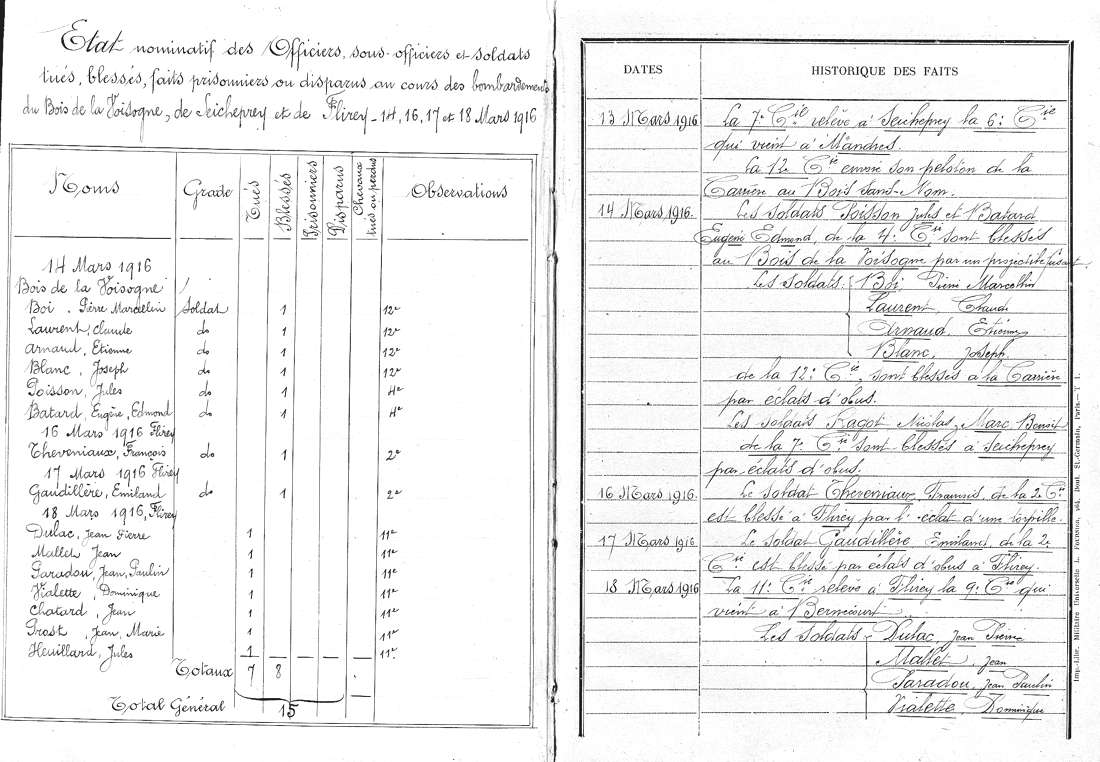 Etat nominatif des Officiers, sous-officiers et soldats
tués, blessés, faits prisonniers ou disparus au cours des bombardements
du Bois de la Voisogne, de Seicheprey et de Flirey - 14, 16, 17 et 18 Mars 1916
Noms Grade Tués Blessés Prisonniers Disparus Chevaux tués ou perdus Observations
14 Mars 1916
Bois de la Voisogne
Boi, Pierre Marcellin Soldat 1 12e
Laurent, Claude do 1 12e
Arnaud, Etienne do 1 12e
Blanc, Joseph do 1 12e
Poisson, Jules do 1 4e
Batard, Eugène, Edmond do 1 4e
16 Mars 1916 Flirey
Theveniaux, François do 1 2e
17 Mars 1916 Flirey
Gaudillère, Emiland do 1 2e
18 Mars 1916, Flirey
Dulac, Jean Pierre 1 11e
Mallet, Jean 1 11e
Paradou, Jean, Paulin 1 11e
Vialette, Dominique 1 11e
Chatard, Jean 1 11e
Prost, Jean, Marie 1 11e
Heuillard, Jules 1 11e
Totaux 7 8
Total Général 15
DATES HISTORIQUE DES FAITS
13 Mars 1916 La 7e Cie relève à Seicheprey la 6e Cie
qui vient à Mandres.
La 12e Cie envoie son peloton de la
Carrière au Bois sans-Nom.
14 Mars 1916. Les soldats Poisson Jules et Batard
Eugène Edmond, de la 4e Cie sont blessés
au Bois de la Voisogne par un projectile fusant
Les soldats Boi, Pierre Marcellin
Laurent, Claude
Arnaud, Etienne
Blanc, Joseph.
de la 12e Cie, sont blessés à la Carrière
par éclats d'obus.
Les soldats Ragot Nicolas, Marc Benoit
de la 7e Cie sont blessés à Seicheprey
par éclats d'obus.
16 Mars 1916. Le soldat Theveniaux, François, de la 2e Cie
est blessé à Flirey par l'éclat d'une torpille.
17 Mars 1916. Le soldat Gaudillère Emiland, de la 2e
Cie est blessé par éclats d'obus à Flirey.
18 Mars 1916 La 11e Cie relève à Flirey la 9e Cie qui
vient à Bernécourt.
Les soldats Dulac, Jean Pierre
Mallet, Jean
Paradou, Jean Paulin
Vialette, Dominique